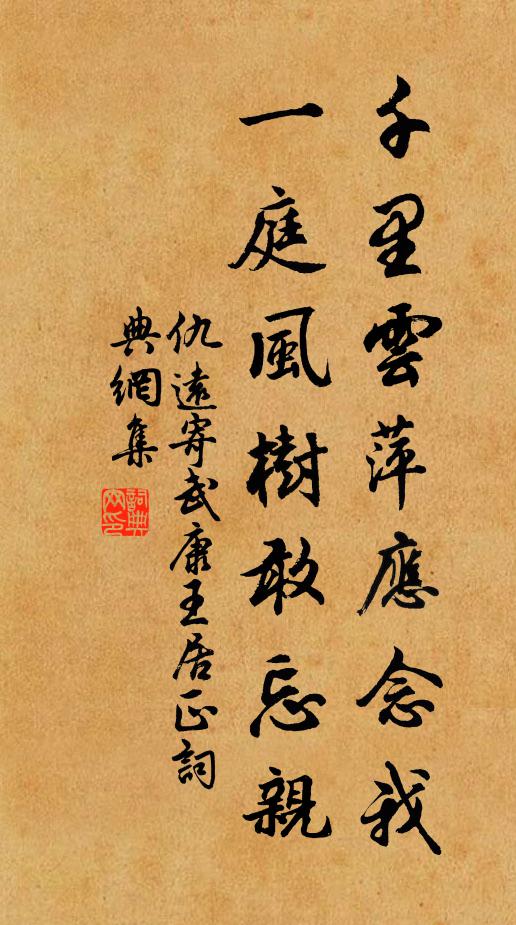 千里雲萍應念我
一庭風樹敢忘親
仇遠寄武康王居正詞
典網集
詞典
网印